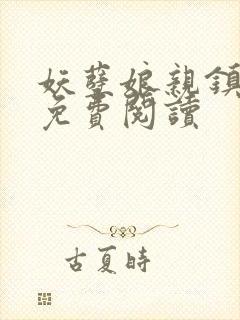 妖孽娘親鎮
免費閱讀
古夏時